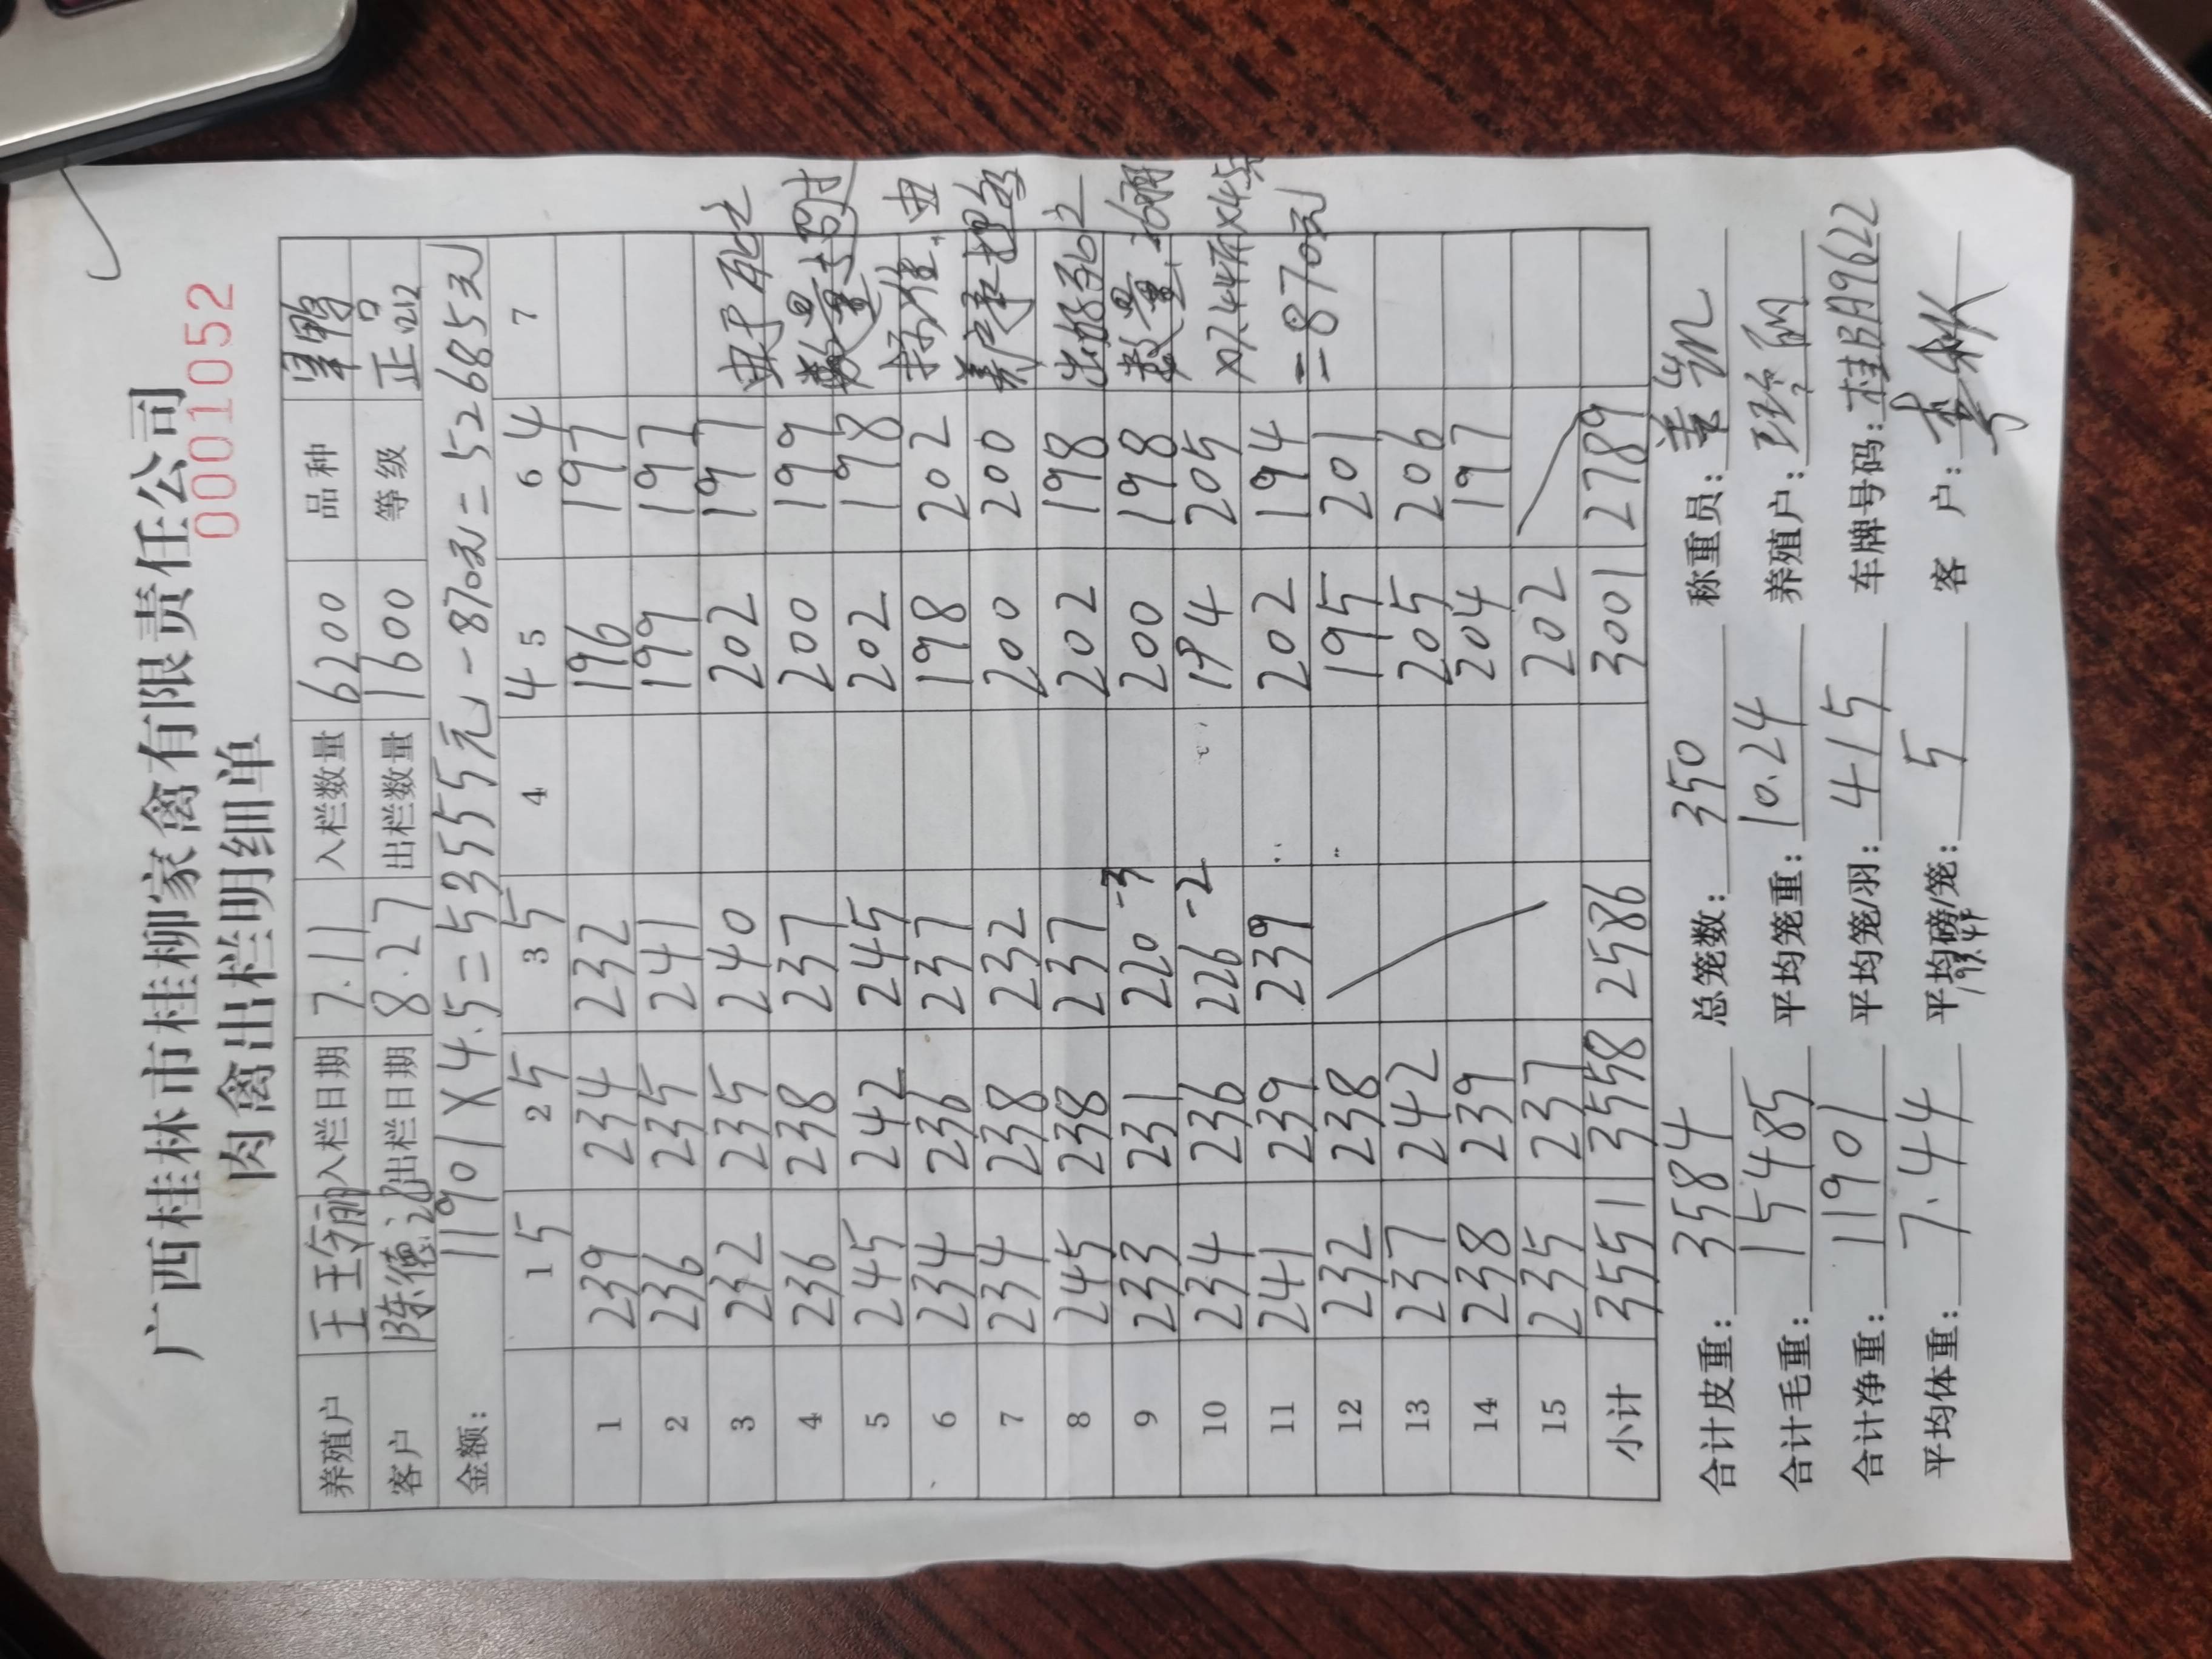 广西桂林市桂柳家禽有限责任公司
肉禽出栏明细单
0001052
养殖户 王玲丽 入栏日期 7.11 入栏数量 6200 品种 鸭
客户 陈德 出栏日期 8.27 出栏数量 1600 等级 正品
金额: 11901×4.5=53555元-870元=52685元
1 5 2 5 3 5 4 4 5 6 4 7
1 239 234 232 196 197
2 236 235 241 199 197
3 232 235 240 202 197 由于死亡
4 236 238 237 200 199 数量超过
5 245 242 245 202 198 标准,由
6 234 236 237 198 202 养户承担多
7 234 238 232 200 200
8 245 238 237 202 198 出的
9 233 231 220 -3 200 198 数量, 26羽
10 234 236 226 -2 194 205 ×7.44斤×4.5元
11 241 239 239 202 194 =870元
12 232 238 195 201
13 237 242 205 206
14 238 239 204 197
15 235 237 202
小计 3551 3558 2586 3001 2789
合计皮重: 3584 总笼数: 350 称重员:
合计毛重: 15485 平均笼重: 10.24 养殖户: 玲丽
合计净重: 11901 平均笼/羽: 4-15 车牌号码: 桂BA9622
平均体重: 7.44 平均磅/笼: 5 客户: